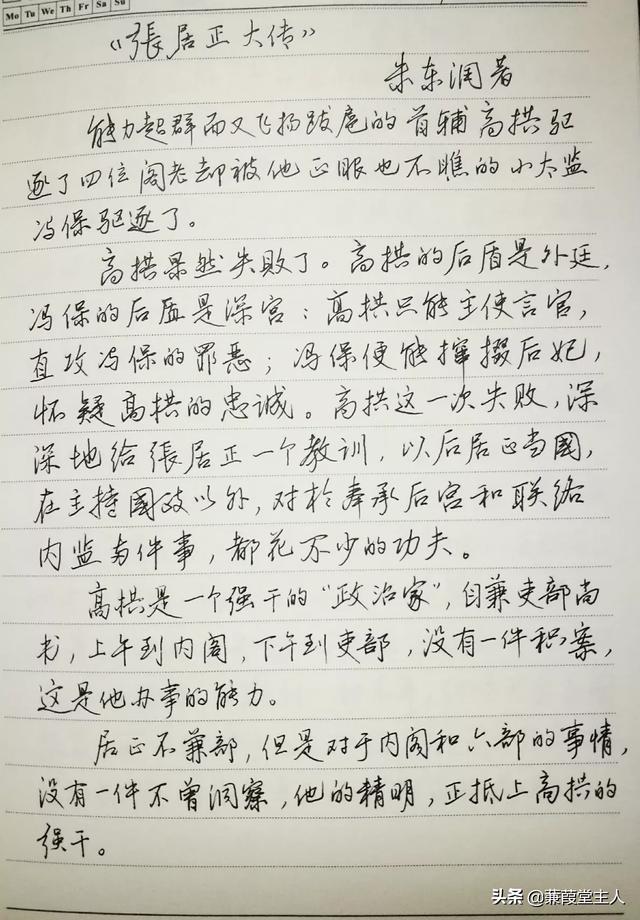 Mo Tu We Th Fr Sa Su
《張居正大传》
朱东润著
能力超群而又飞扬跋扈的首辅高拱驱
逐了四位阁老却被他正眼也不瞧的小太监
冯保驱逐了。
高拱果然失败了。高拱的后盾是外廷,
冯保的后盾是深宫:高拱只能主使言官,
直攻冯保的罪恶;冯保便能撺掇后妃,
怀疑高拱的忠诚。高拱这一次失败,深
深地给張居正一个教训,以后居正当國,
在主持國政以外,对於奉承后宫和联络
内监两件事,都花不少的功夫。
高拱是一个强干的“政治家”,自兼吏部尚
书,上午到内阁,下午到吏部,没有一件积案,
这是他办事的能力。
居正不兼部,但是对于内阁和六部的事情,
没有一件不曾洞察,他的精明,正抵上高拱的
强干。
头条 @蒹葭堂主人